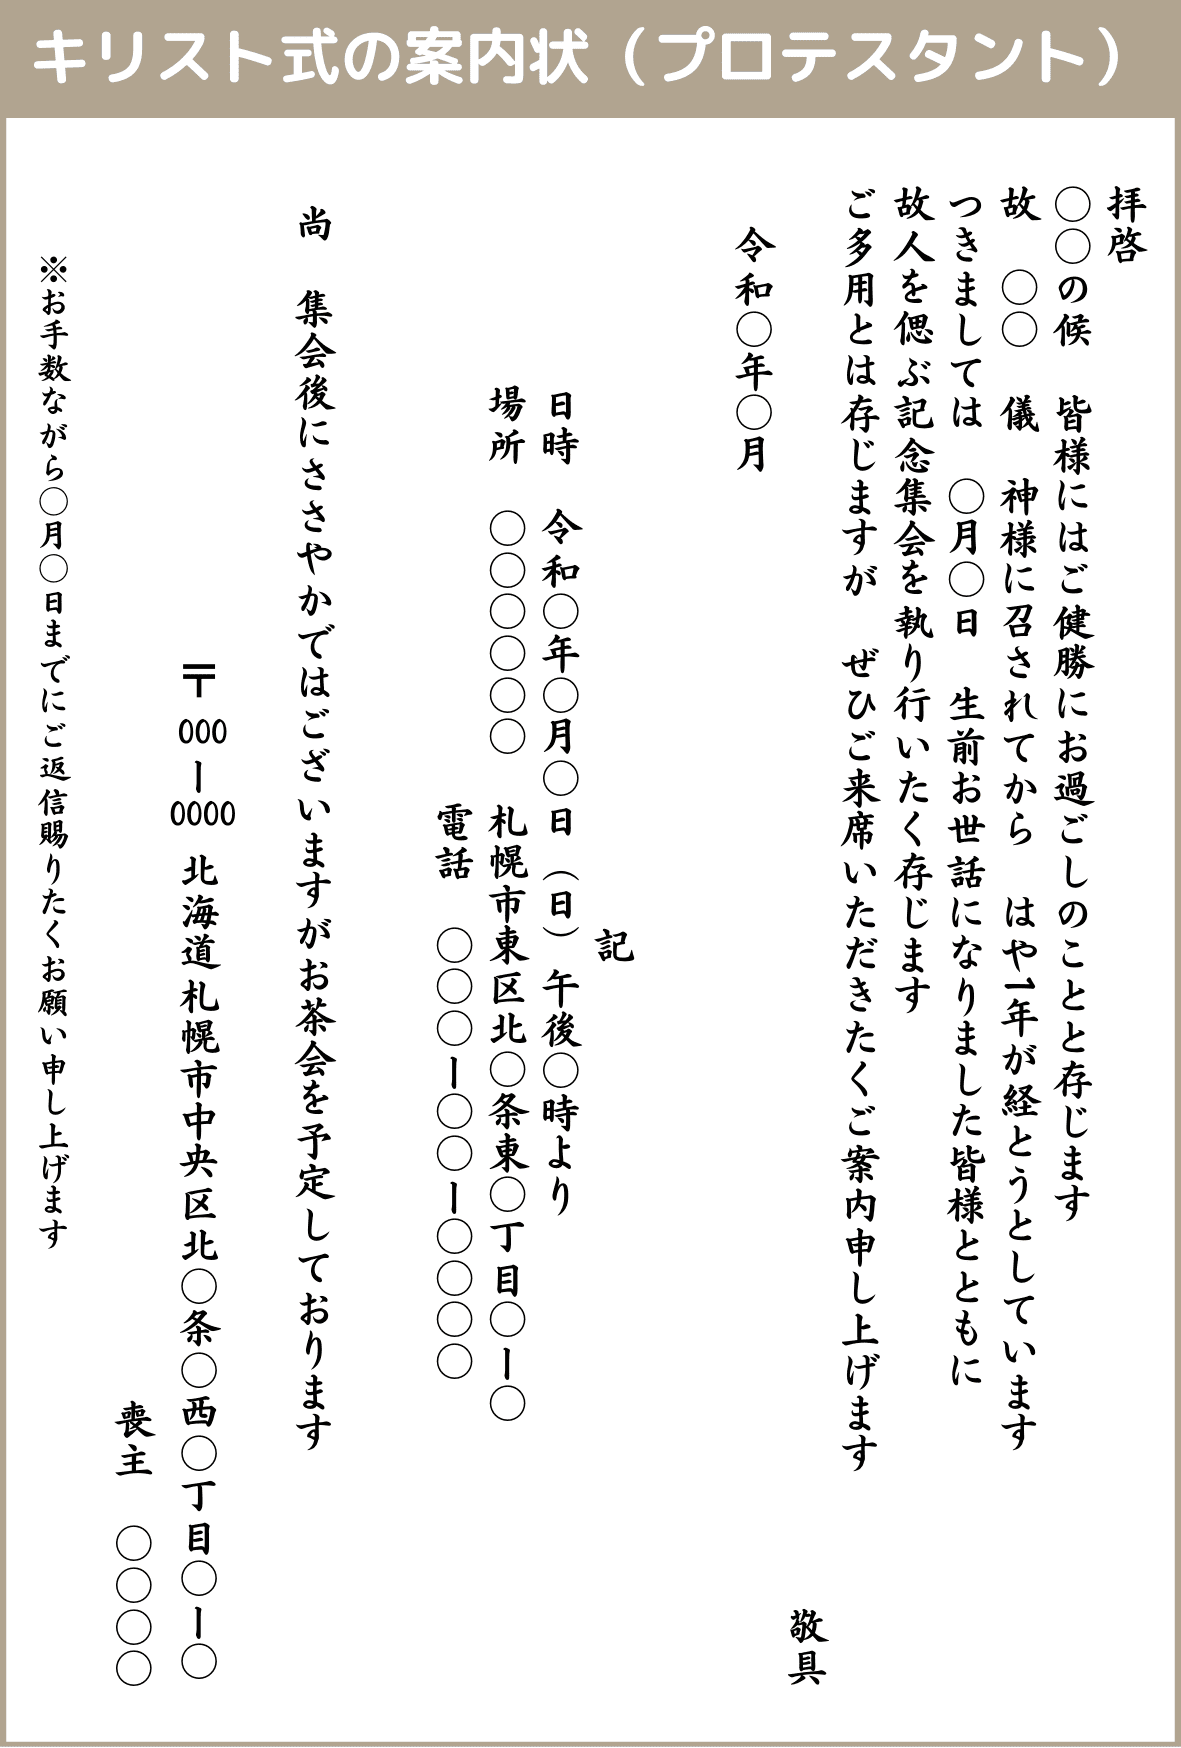 キリスト式の案内状（プロテスタント）
拝啓
〇〇の候　皆様にはご健勝にお過ごしのことと存じます
故　〇〇　儀　神様に召されてから　はや1年が経とうとしています
つきましては　〇月〇日　生前お世話になりました皆様とともに
故人を偲ぶ記念集会を執り行いたく存じます
ご多用とは存じますが　ぜひご来席いただきたくご案内申し上げます
敬具
令和〇年〇月
記
日時　令和〇年〇月〇日（日）午後〇時より
場所　〇〇〇〇〇〇　札幌市東区北〇条東〇丁目〇ー〇
電話　〇〇〇ー〇〇ー〇〇〇〇
尚　集会後にささやかではございますがお茶会を予定しております
〒000ー0000 北海道札幌市中央区北〇条〇西〇丁目〇ー〇
喪主　〇〇〇〇
※お手数ながら〇月〇日までにご返信賜りたくお願い申し上げます